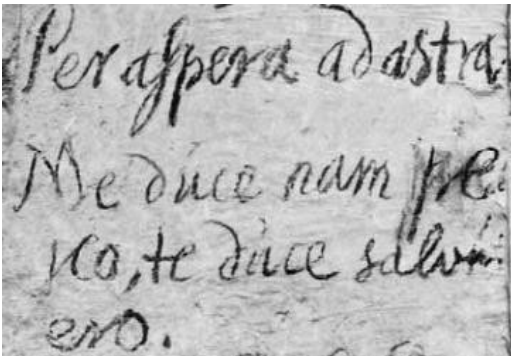 Per aſpera ad astra
Me duce nam pe
reo, te duce salvus
ero.